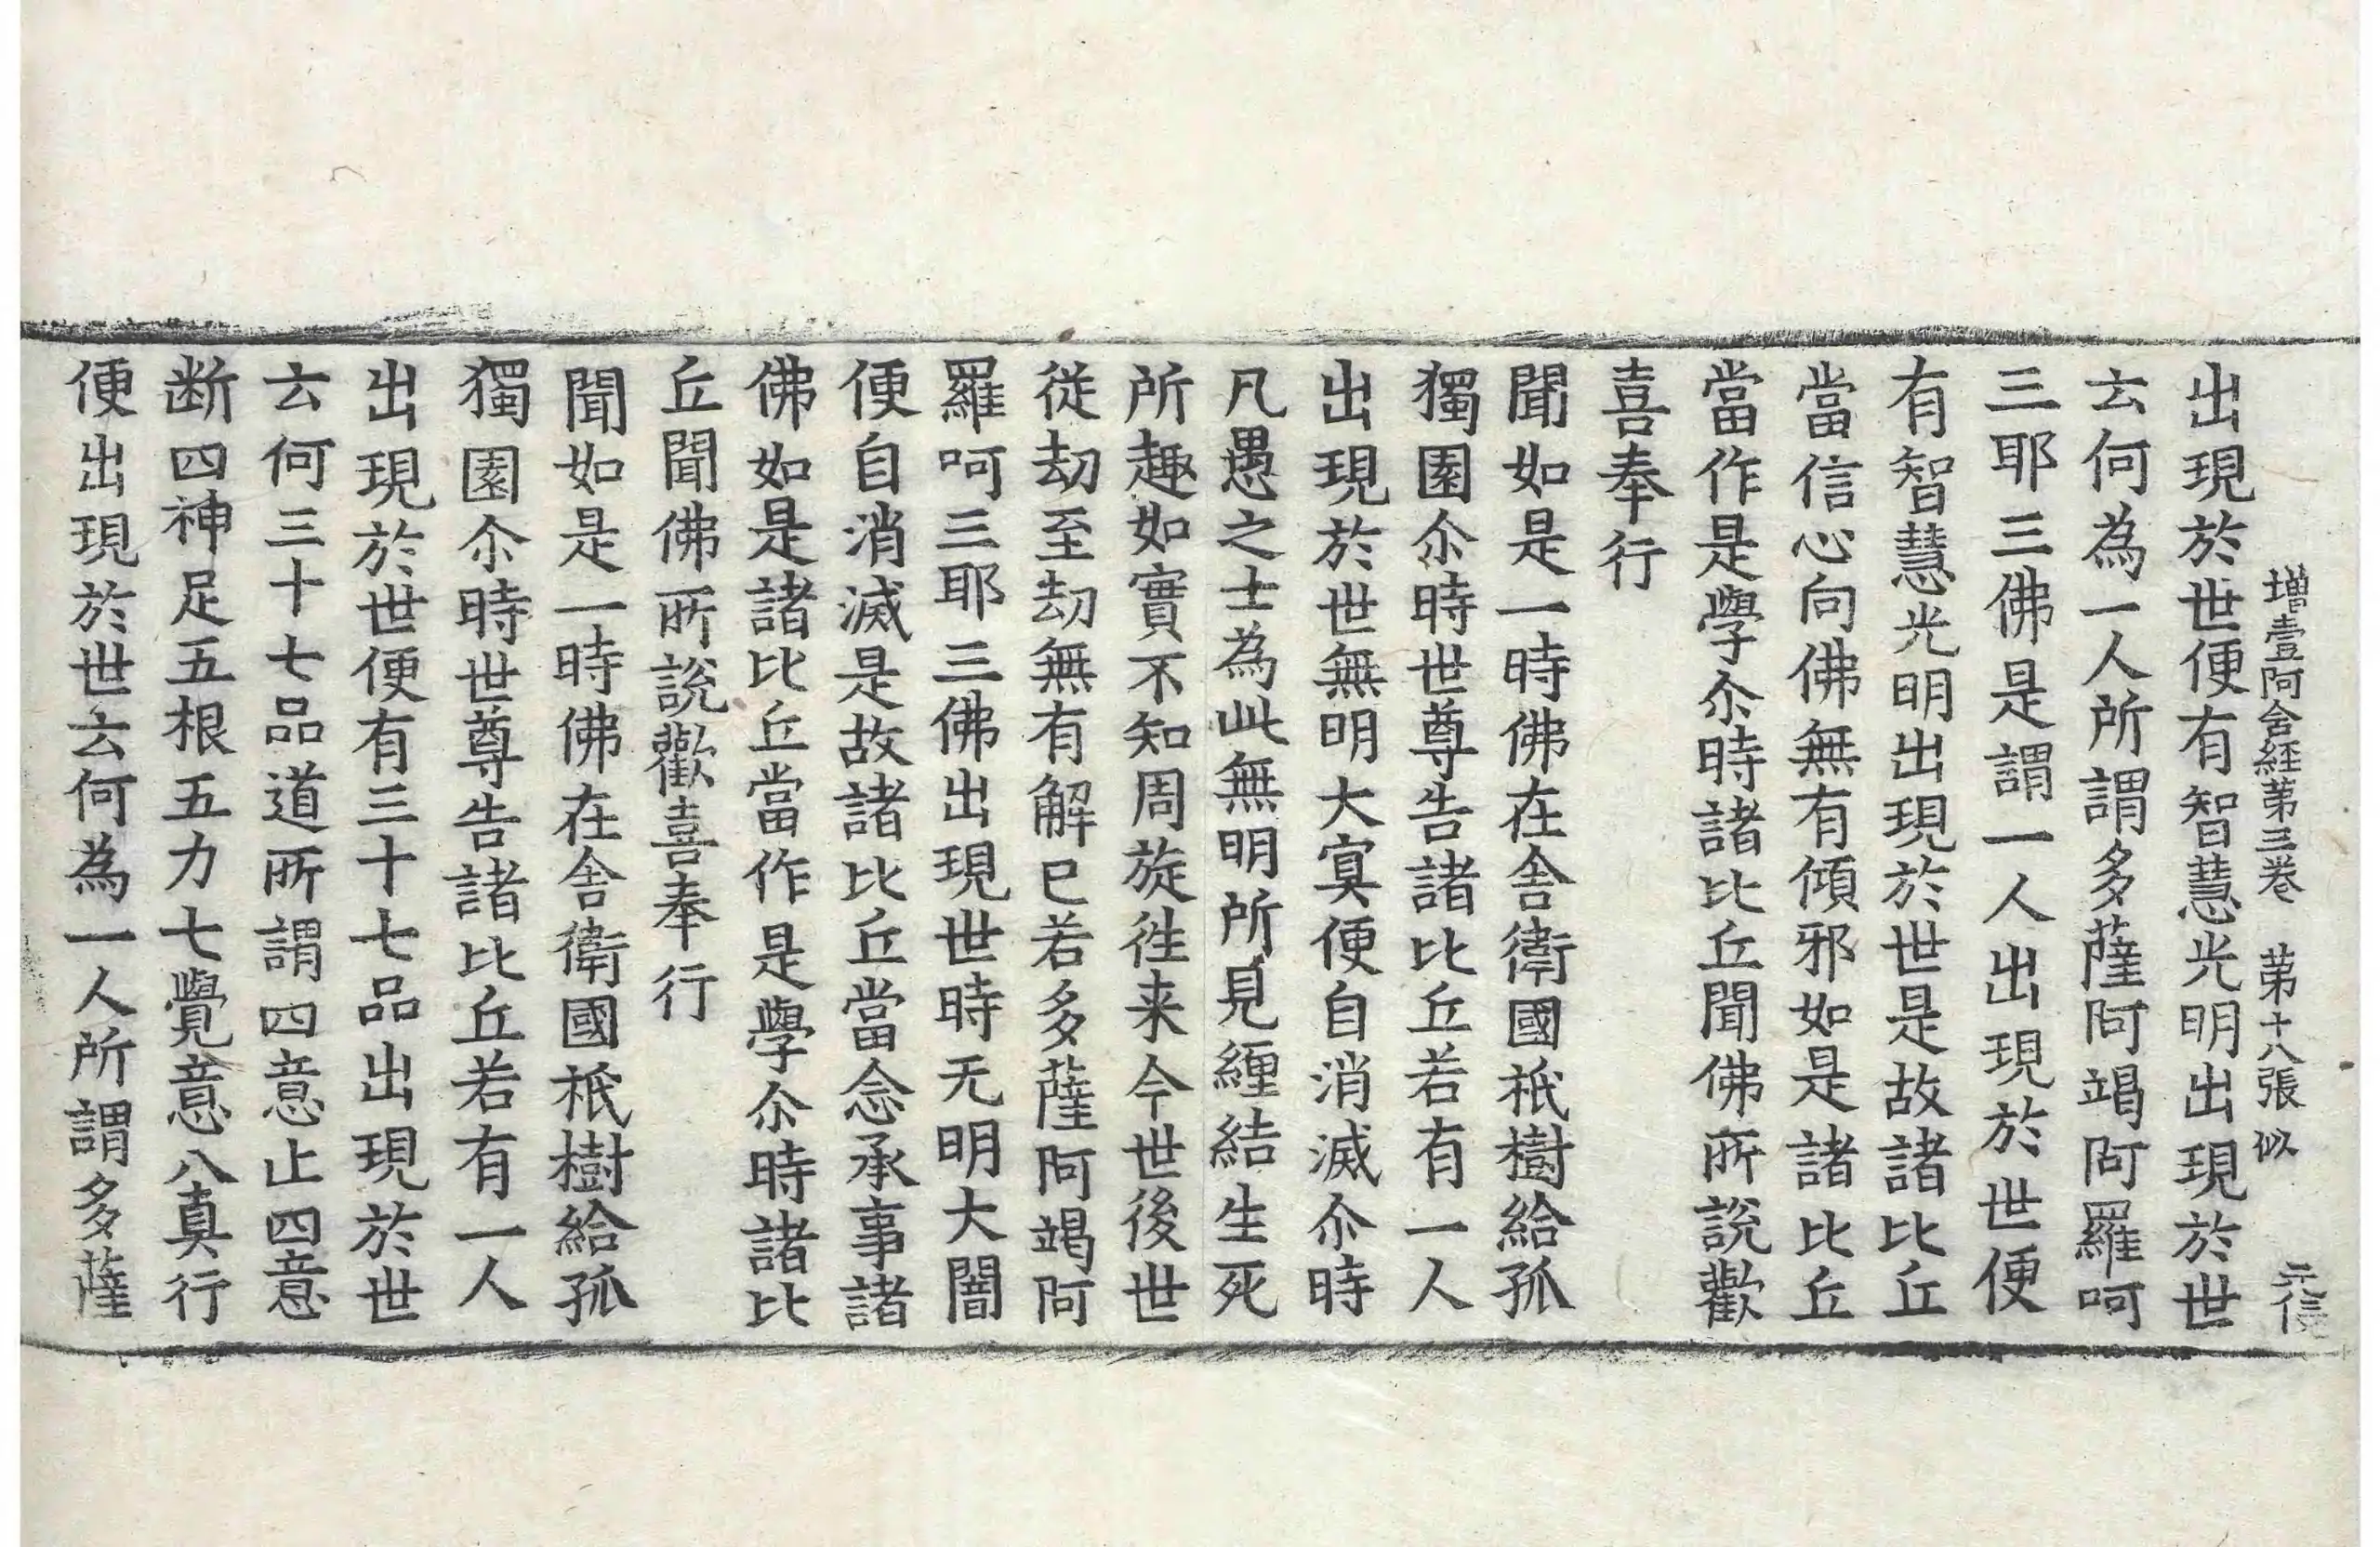 增壹阿含経第三卷 第十八張 似 元信
出現於世便有智慧光明出現於世
云何為一人所謂多薩阿竭阿羅呵
三耶三佛是謂一人出現於世便
有智慧光明出現於世是故諸比丘
當信心向佛無有傾邪如是諸比丘
當作是學尒時諸比丘聞佛所說歡
喜奉行
聞如是一時佛在舎衛國祇樹給孤
獨園尒時世尊告諸比丘若有一人
出現於世無明大寞便自消滅尒時
凡愚之士為此無明所見纏結生死
所趣如實不知周旋徃来今世後世
従劫至劫無有解已若多薩阿竭阿
羅呵三耶三佛出現世時无明大闇
便自消滅是故諸比丘當念承事諸
佛如是諸比丘當作是學尒時諸比
丘聞佛所說歡喜奉行
聞如是一時佛在舎衛國祇樹給孤
獨園尒時世尊告諸比丘若有一人
出現於世便有三十七品出現於世
云何三十七品道所謂四意止四意
断四神足五根五力七覺意八真行
便出現於世云何為一人所謂多薩